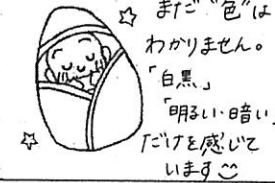 まだ"色"は
わかりません。
「白黒」
「明るい・暗い」
だけを感じて
います